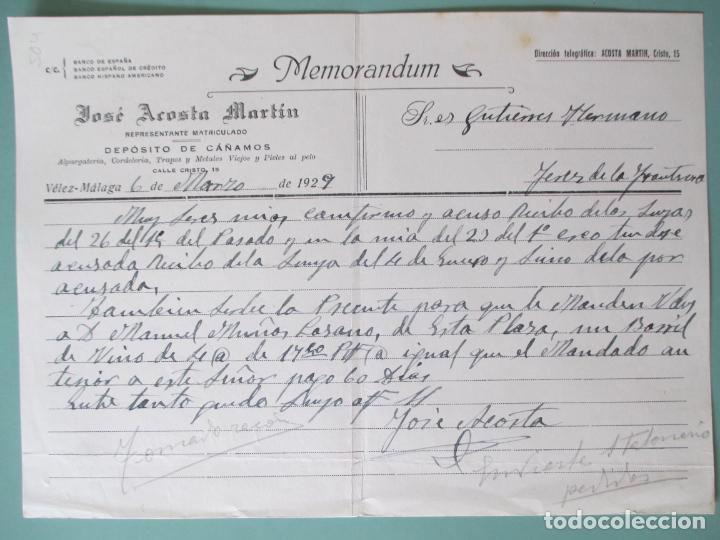 504
c/c.
BANCO DE ESPAÑA
BANCO ESPAÑOL DE CRÉDITO
BANCO HISPANO AMERICANO
Memorandum
Dirección telegráfica: ACOSTA MARTIN, Cristo, 15
José Acosta Martín
REPRESENTANTE MATRICULADO
DEPÓSITO DE CÁÑAMOS
Alpargatería, Cordelería, Trapos y Metales Viejos y Pieles al pelo
CALLE CRISTO, 15
Sres Gutierres Hermano
Jerez de la Frontrera
Vélez-Málaga 6 de Marzo de 1929
Muy Sres mios comfirmo y acuso Recibo de las Suyas
del 26 del del Pasado y en la mia del 23 del creo tuve
acusada Recibo de la Suya del 4 de Enero y Sino dela por
acusada,
Tambien Sirbe la Presente para que le Manden Vdes
a D. Manuel Muños Lozano, de Esta Plaza, un Barril
de Vino de 4 @ de 1750 Pts @ igual que el Mandado an
terior a este Señor pago 60 Dias
Entre tanto quedo Suyo aff
José Acosta
Tomado razon
pedidos
todocoleccion
todocoleccion.net